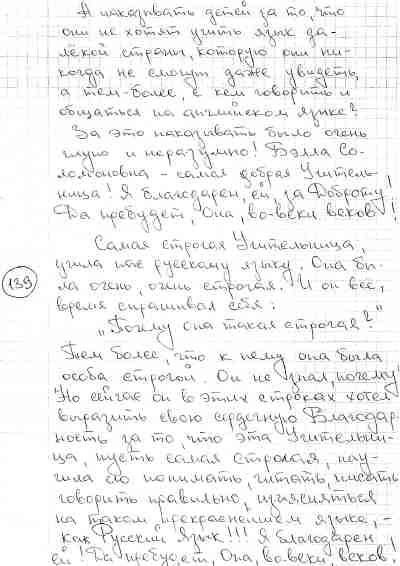 А наказывать детей за то, что
они не хотят учить язык да-
лёкой страны, которую они ни-
когда не смогут даже увидеть,
а тем-более, с кем говорить и
общаться на английском языке?
За это наказывать было очень
глупо и неразумно! Бэлла Со-
ломоновна - самая добрая Учитель-
ница! Я благодарен, ей, за Доброту!
Да пребудет, Она, во-веки веков!
Самая строгая Учительница,
учила нас русскому языку. Она бы-
ла очень, очень строгая. И он всё,
время спрашивал себя:
139
„Почему она такая строгая?"
Тем более, что к нему она была
особа строгой. Он не знал, почему!
Но сейчас он в этих строках хотел
выразить свою сердечную Благодар-
ность за то что эта Учительни-
ца, пусть самая строгая, нау-
чила его понимать, читать, писать
говорить правильно, изъясняться
на таком прекраснейшем языке, -
как Русский Язык!!! Я благодарен
ей! Да пребудет, Она, во-веки, веков!